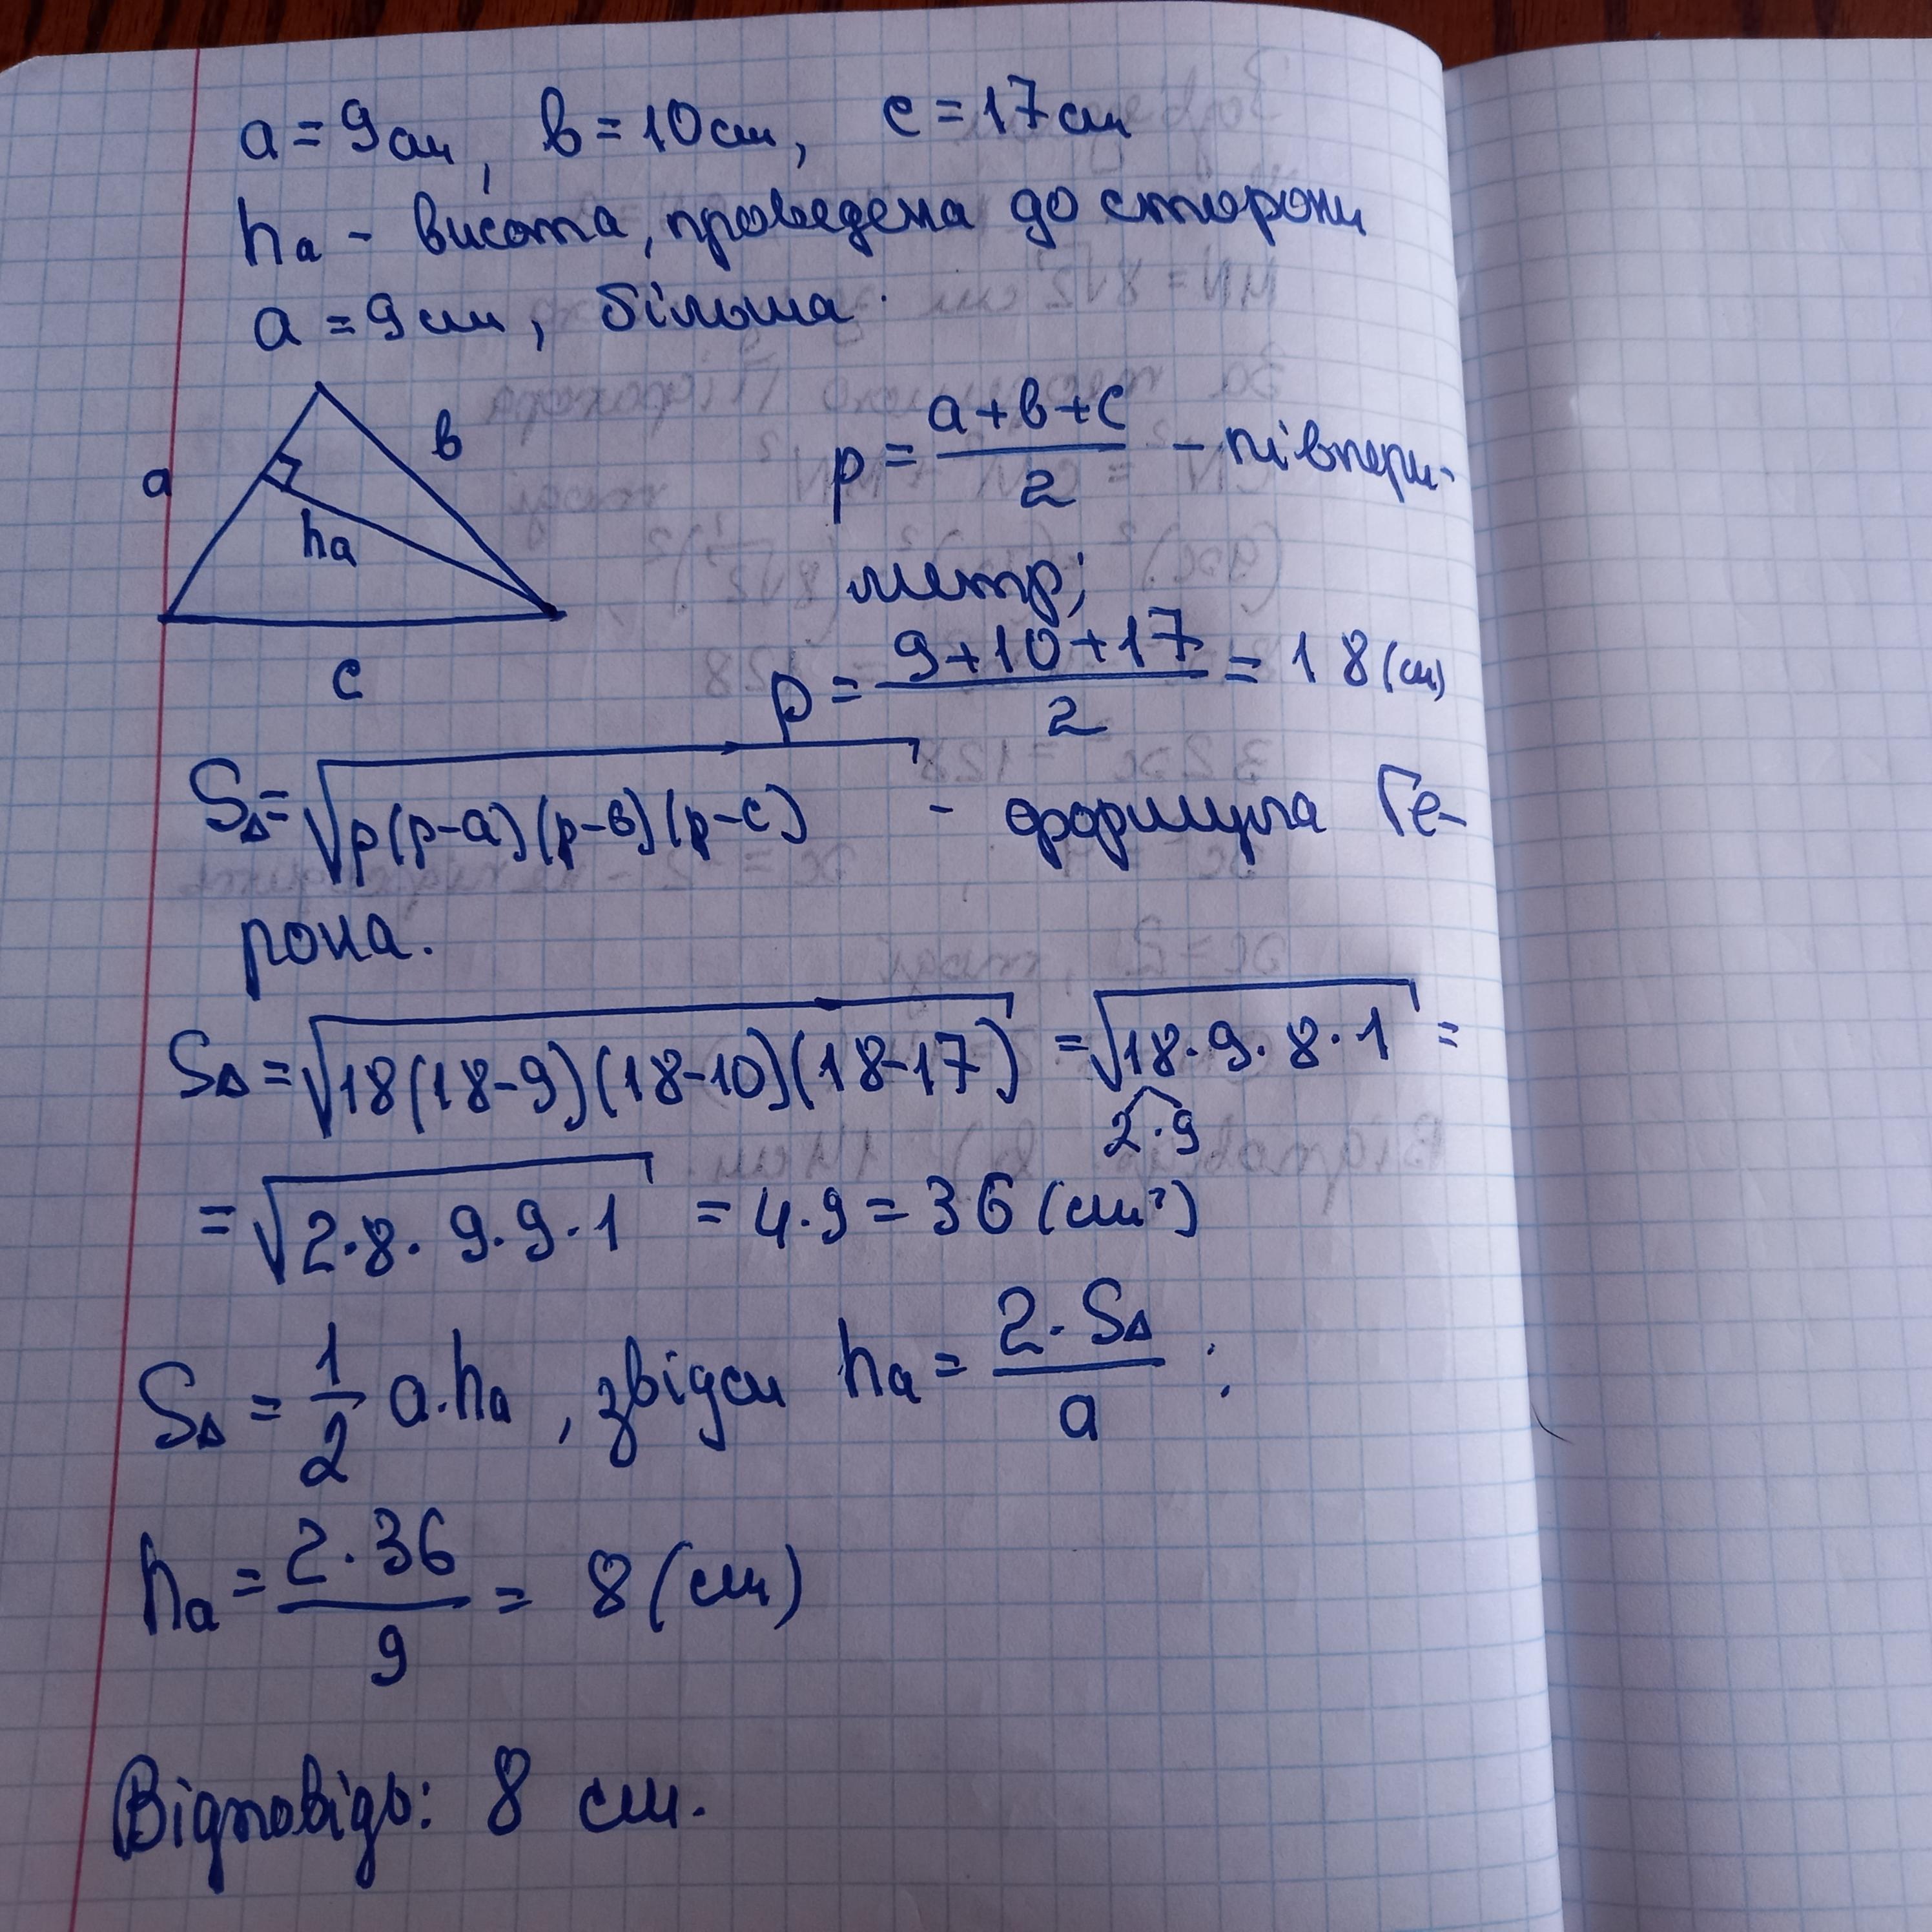 a = 9 см, в = 10 см, с = 17 см
ha - висота, проведена до сторони
a = 9 см, більша.
a
в
ha
c
p = (a+в+c)/2 - півпери-
метр;
p = (9+10+17)/2 = 18 (см)
S△ = √p(p-a)(p-в)(p-c) - формула Ге-
рона.
S△ = √18(18-9)(18-10)(18-17) = √18·9·8·1 =
2·9
= √2·8·9·9·1 = 4·9 = 36 (см²)
S△ = 1/2 a·ha, звідси ha = 2·S△/a ;
ha = 2·36/9 = 8 (см)
Відповідь: 8 см.